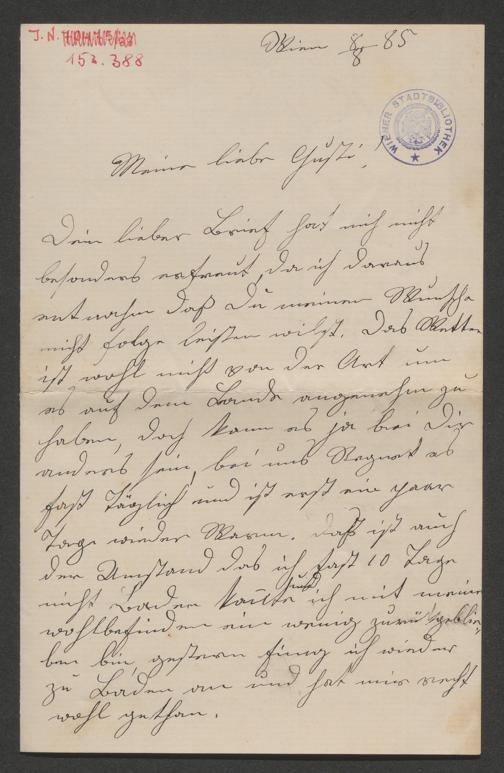 J. N.
152.388
Wien 8/8 85
WIENER STADTBIBLIOTHEK
Meine liebe Gusti!
Dein lieber Brief hat mich nicht
besonders erfreut, da ich daraus
entnahm daß Du meinem Wunsche
nicht folge leisten wilst. Das Wetter
ist wohl nicht von der Art um
es auf dem Lande angenehm zu
haben, doch kann es ja bei Dir
anders sein, bei uns Regnet es
fast täglich und ist erst ein paar
Tage wieder Warm. Daß ist auch
der Umstand das ich fast 10 Tage
nicht Baden konnte und ich mit meinem
wohlbefinden ein wenig zurückgeblie-
ben bin, gestern fing ich wieder
zu Baden an und hat mir recht
wohl gethan.